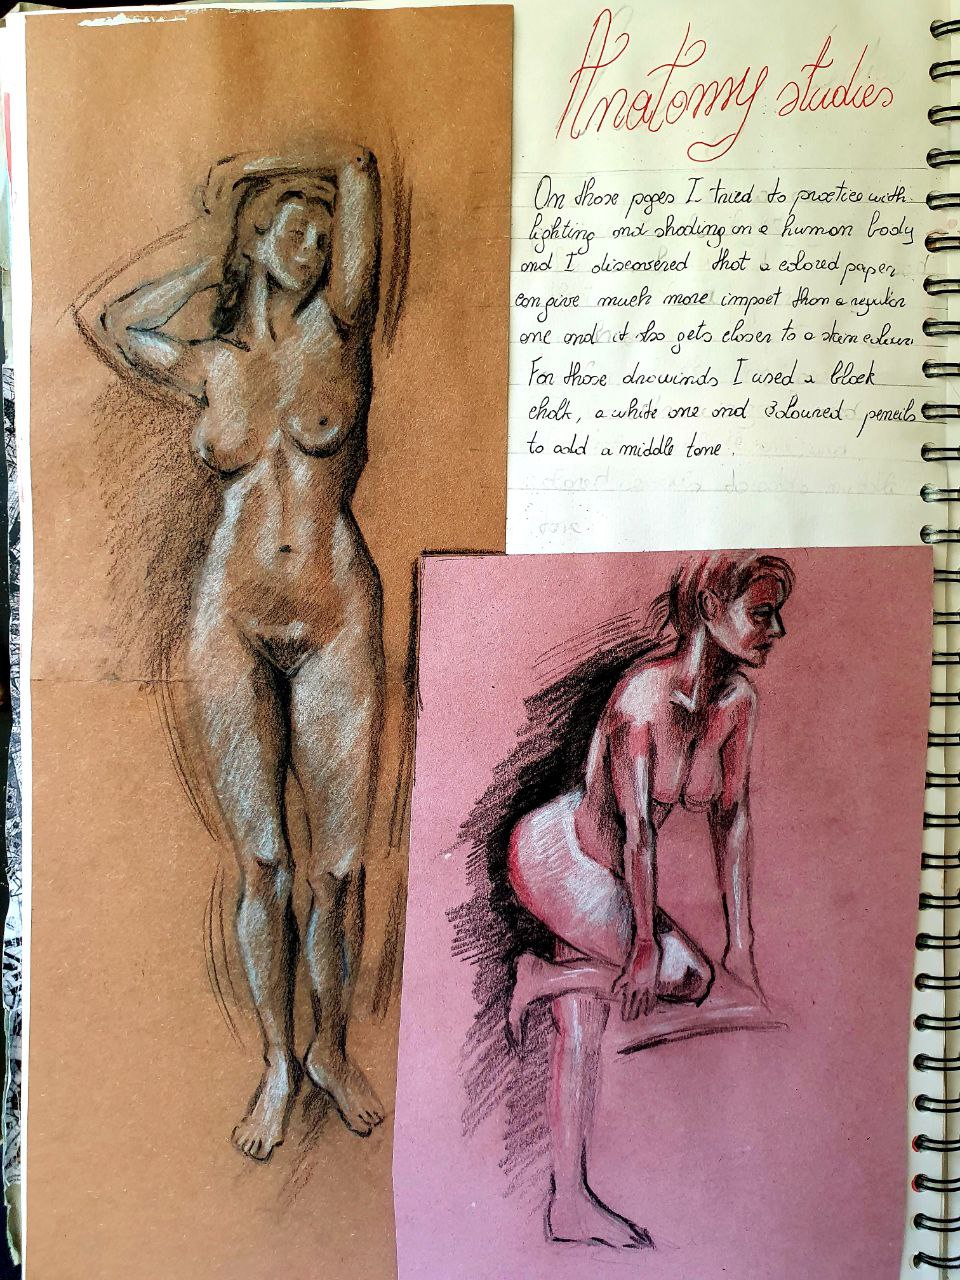 Anatomy studies
On those pages I tried to practice with
lighting and shading on a human body
and I discovered that a colored paper
can give much more impact than a regular
one and it also gets closer to a skin colour.
For those drawinds I used a black
chalk, a white one and coloured pencils
to add a middle tone.